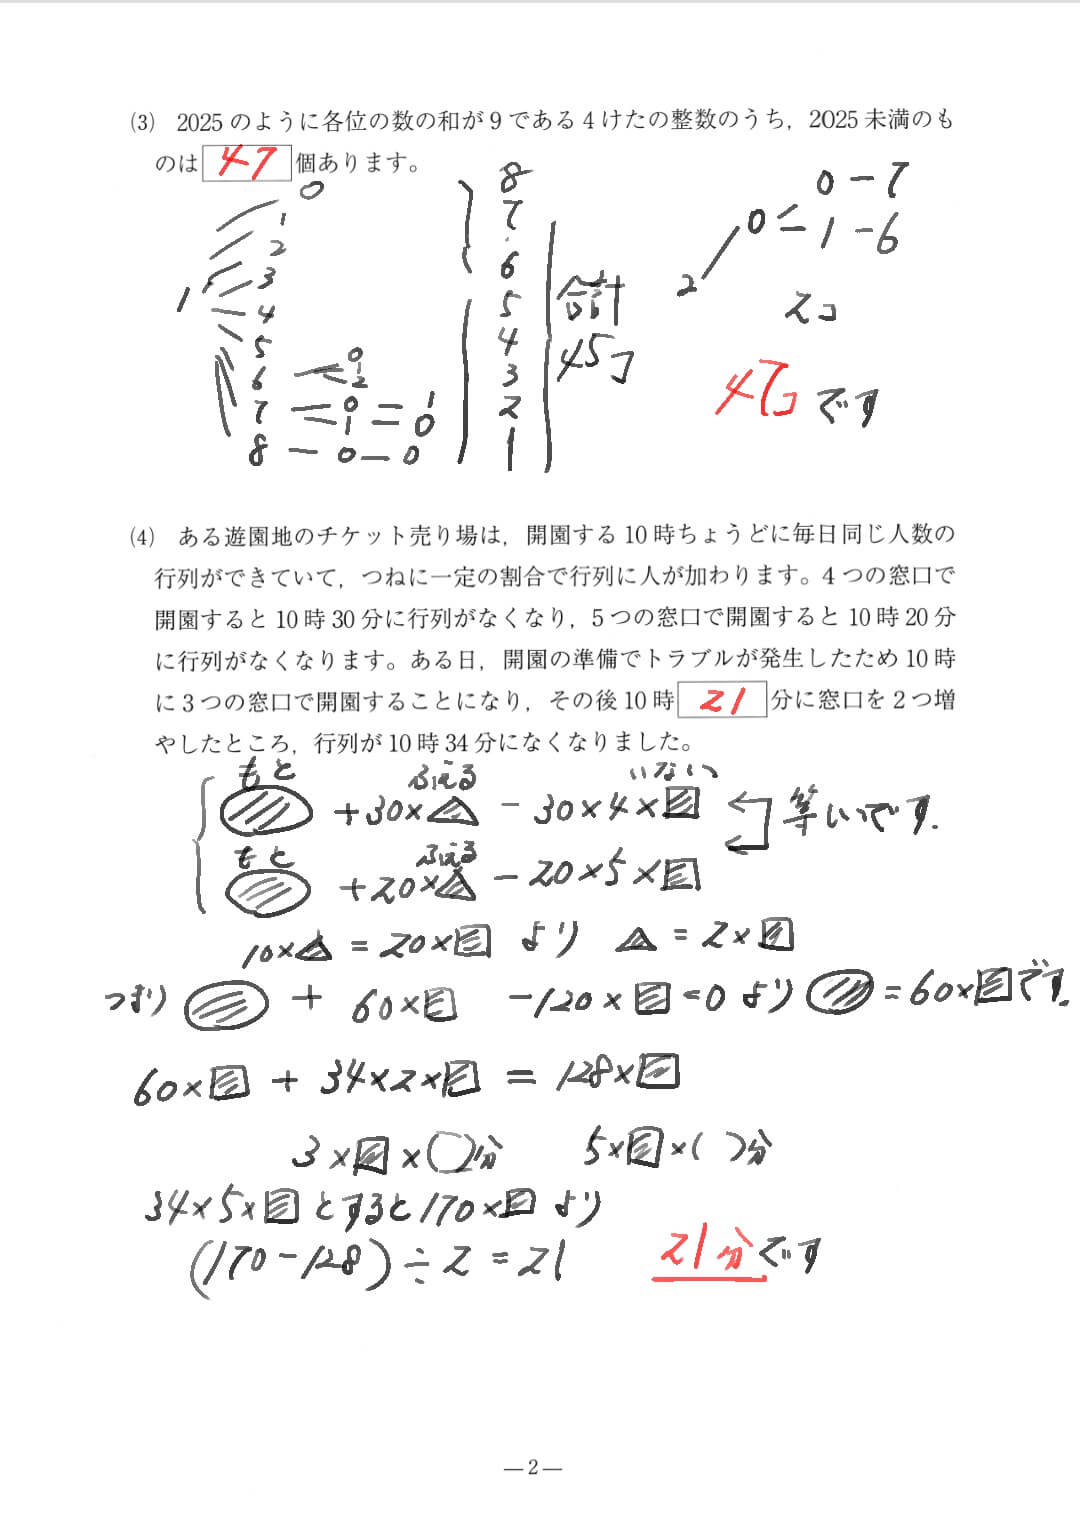 (3) 2025のように各位の数の和が9である4けたの整数のうち，2025未満のも
のは 47 個あります。
0
1
2
3
1
4
5
6 0 1 2
7 0 1 1 0
8 0 0
8
7
6
5
4
3
2
1
合計
45コ
2 0 0-7
1-6
2コ
47コです
(4) ある遊園地のチケット売り場は，開園する10時ちょうどに毎日同じ人数の
行列ができていて，つねに一定の割合で行列に人が加わります。4つの窓口で
開園すると10時30分に行列がなくなり，5つの窓口で開園すると10時20分
に行列がなくなります。ある日，開園の準備でトラブルが発生したため10時
に3つの窓口で開園することになり，その後10時 21 分に窓口を2つ増
やしたところ，行列が10時34分になくなりました。
もと ふえる いない
+30× -30×4× 等いです.
もと ふえる
+20× -20×5×
10×△=20×□ より △=2×□
つまり ○ + 60×□ -120×□=0 より ○=60×□です.
60×□ + 34×2×□ = 128×□
3×□×( )分 5×□×( )分
34×5×□とすると170×□より
(170-128)÷2=21 21分です
—2—